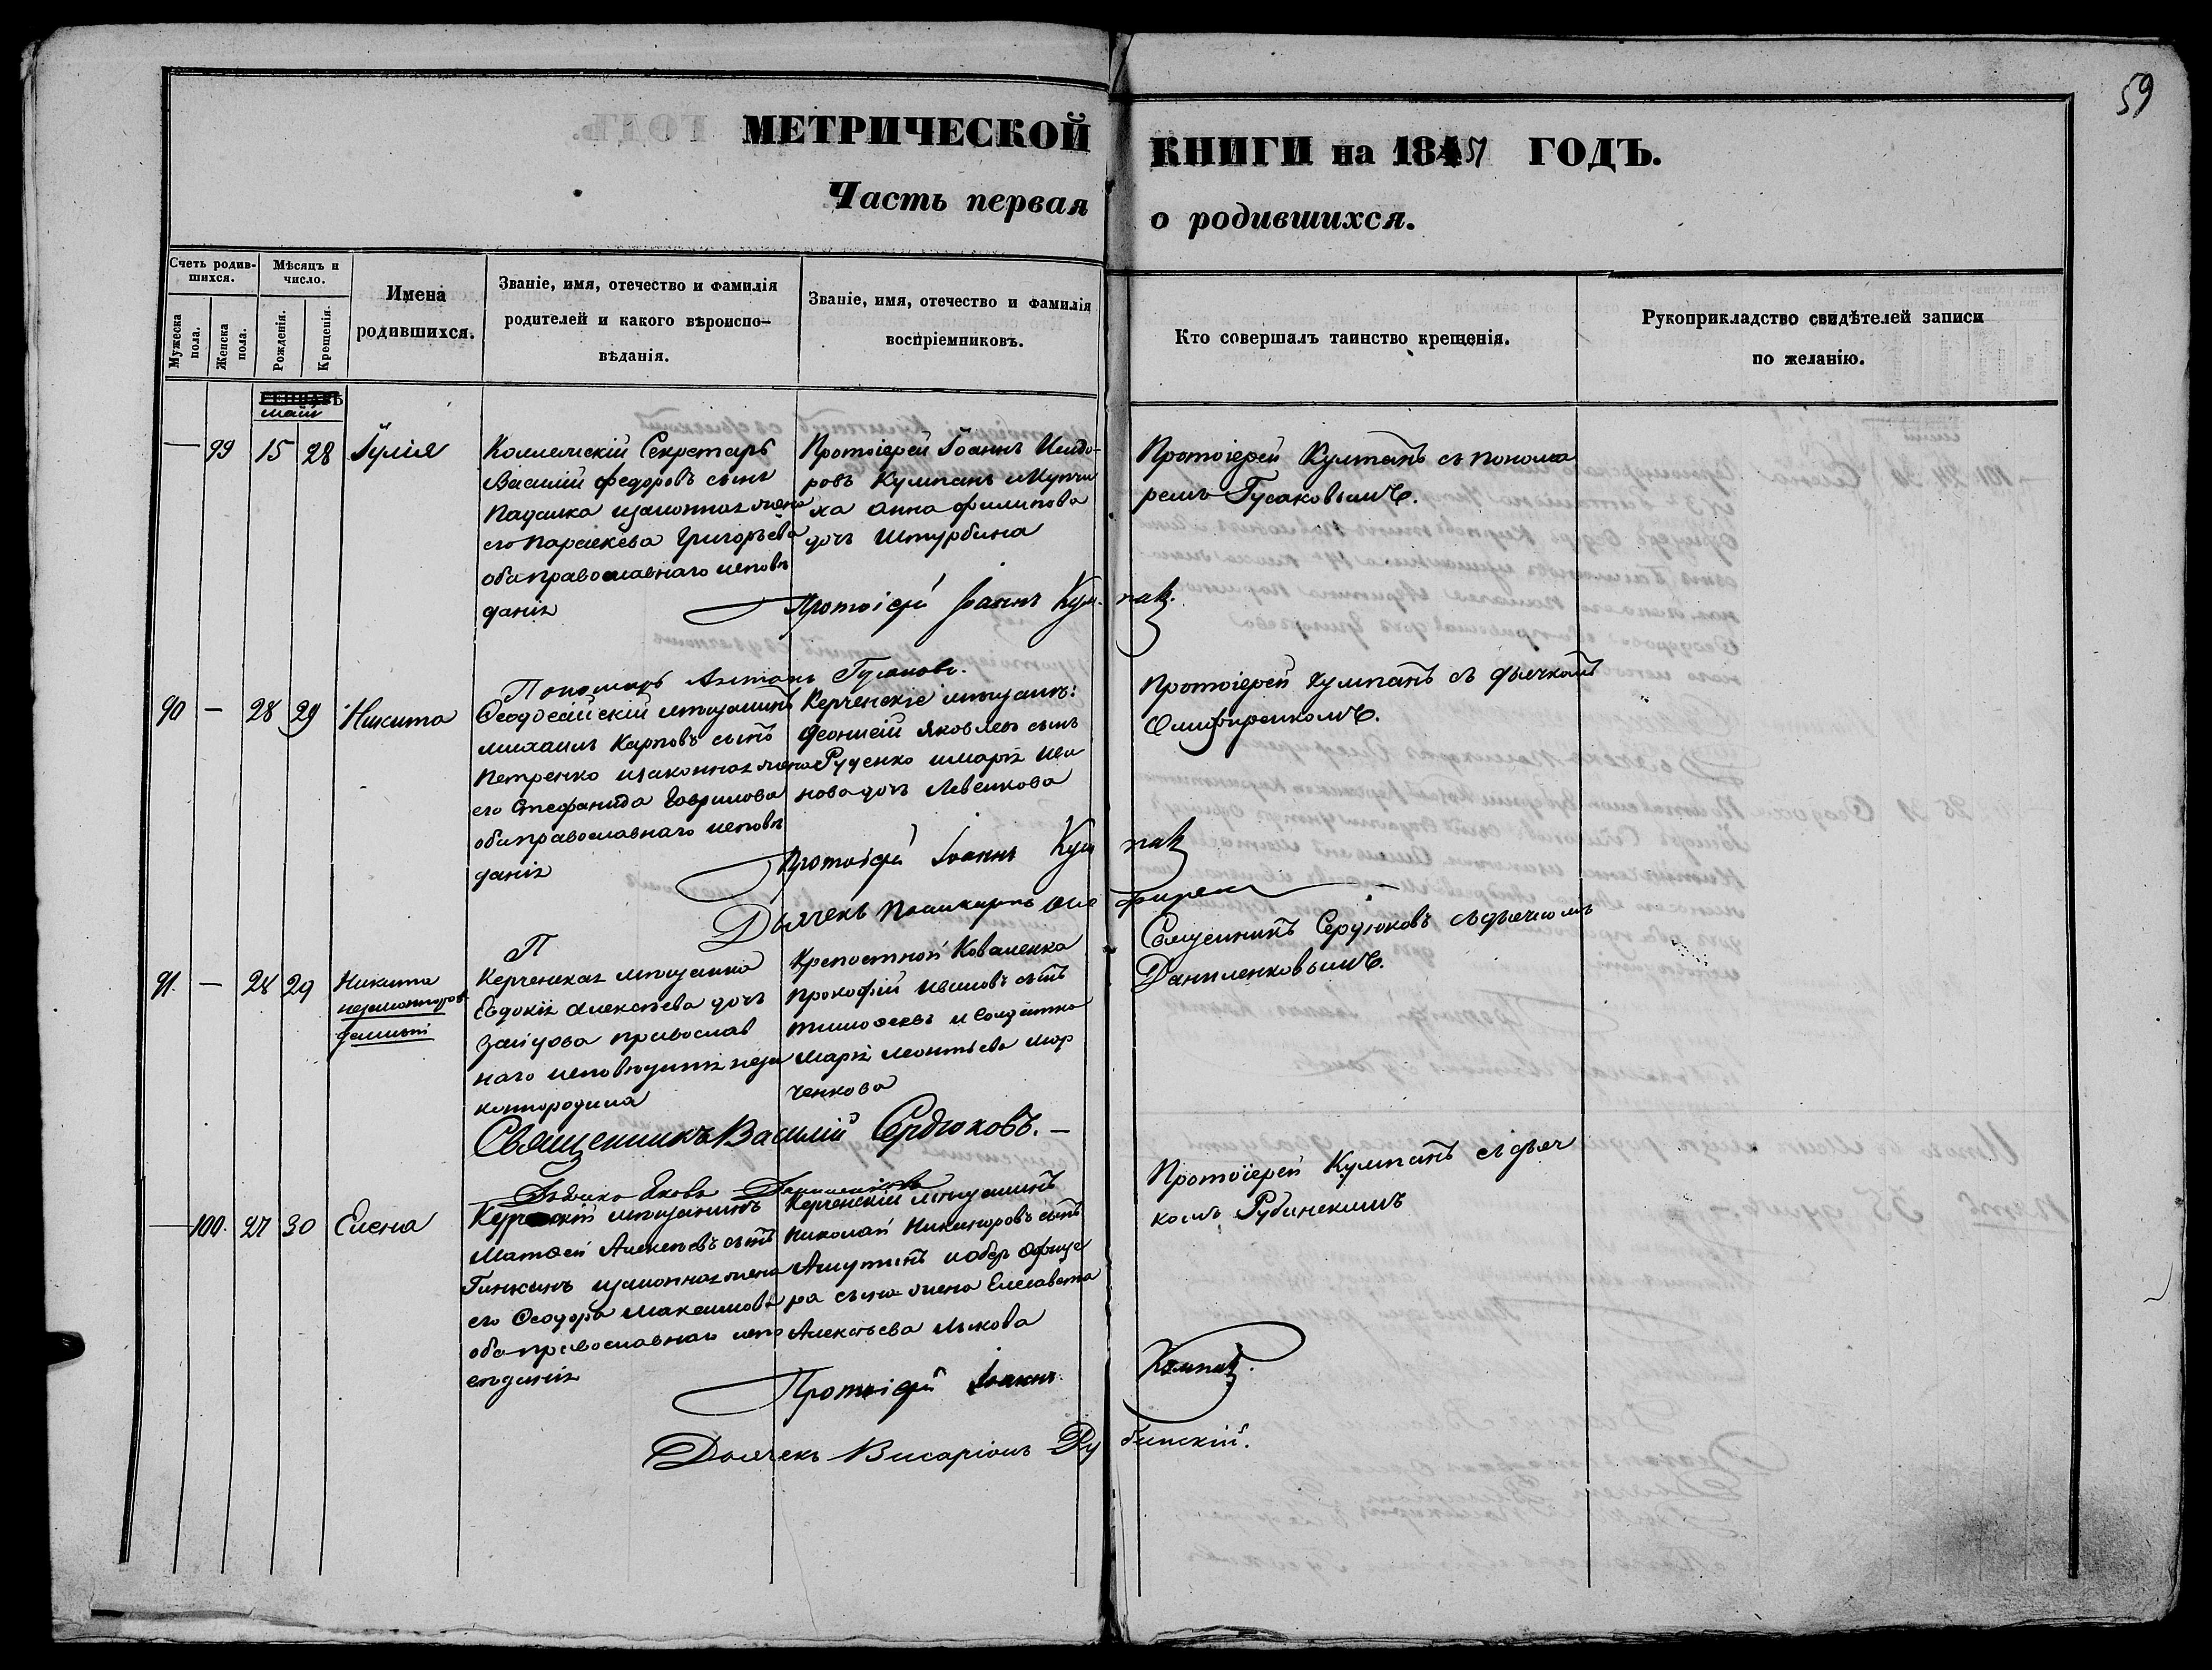 59
МЕТРИЧЕСКОЙ КНИГИ на 1851 ГОДЪ.
Часть первая о родившихся.
Счетъ родив-
шихся.
Мужеска пола.
Женска пола.
Мѣсяцъ и
число.
Рожденія.
Крещенія.
Имена
родившихся.
Званіе, имя, отечество и фамилія
родителей и какого вѣроиспо-
вѣданія.
Званіе, имя, отечество и фамилія
воспріемниковъ.
Кто совершалъ таинство крещенія.
Рукоприкладство свидѣтелей записи
по желанію.
Май
— 99 15 28 Іулія
Коллежскій Секретарь
Василій Федоровъ сынъ
законная жена
его Параскева Григорьева
оба православнаго исповѣ
данія
Протоіерей Іоаннъ Исидо-
ровъ Кумпанъ и Купчи
ха Анна Филипова
дочь Штурбина
Протоіерей Кумпанъ съ понома
ремъ Гусаковымъ.
Протоіерей Іоаннъ Кумпанъ.
Пономарь Антонъ Гусаковъ.
90 — 28 29 Никита
Ѳеодосійскій мѣщанинъ
Михаилъ Карповъ сынъ
Петренко и законная жена
его Стефанида Гаврилова
оба православнаго исповѣ
данія
Керченскіе мѣщане:
Леонтій Яковлевъ сынъ
Руденко и Марія Ива
нова дочь Левенкова
Протоіерей Кумпанъ съ дьячкомъ
Олифиренкомъ.
Протоіерей Іоаннъ Кумпанъ
Дьячекъ Поликарпъ Олифирен
П
91. — 28 29 Никита
незаконнорож
денный
Керченская мѣщанка
Евдокія Алексѣева дочь
Зайцова православ
наго исповѣданія неза
коннородила
Крепостной Коваленка
Прокофій Ивановъ сынъ
Тимоѳеевъ и Солдатка
Марія Леонтьева Мор
ченкова
Священникъ Сердюковъ съ дьячкомъ
Даниленковымъ.
Священникъ Василій Сердюковъ. —
Дьячко Яковъ Даниленковъ
— 100. 27 30 Елена
Керченскій мѣщанинъ
Матѳей Алексѣевъ сынъ
Гинкинъ и законная жена
его Ѳеодора Максимова
оба православнаго испо
вѣданія
Керченскій мѣщанинъ
Николай Никаноровъ сынъ
Ашутинъ и Оберъ Офице
ра сына жена Елисавета
Алексѣева Лыкова
Протоіерей Кумпанъ съ дьяч
комъ Рубинскимъ
Протоіерей Іоаннъ Кумпанъ.
Дьячекъ Висаріонъ Рубинскій.